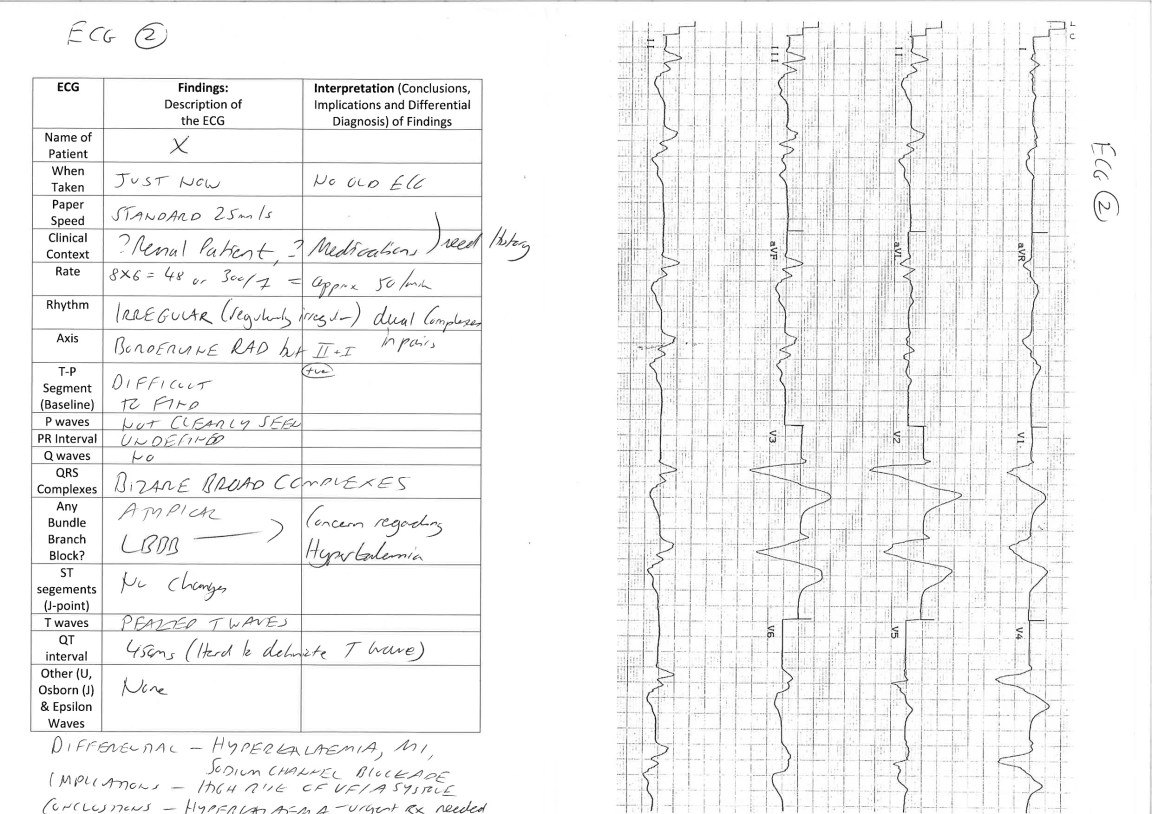 ECG ②
ECG
Findings:
Description of
the ECG
Interpretation (Conclusions,
Implications and Differential
Diagnosis) of Findings
Name of
Patient
X
When
Taken
JUST NOW
NO OLD ECG
Paper
Speed
STANDARD 25m/s
Clinical
Context
? Renal Patient, ? Medications ) need History
Rate
8x6 = 48 or 300/7 = approx 50/min
Rhythm
IRREGULAR (regularly irregular) dual Complexes
in pairs
Axis
BORDERLINE RAD but II + I
+ve
T-P
Segment
(Baseline)
DIFFICULT
TO FIND
P waves
NOT CLEARLY SEEN
PR Interval
UNDEFINED
Q waves
NO
QRS
Complexes
BIZARE BROAD COMPLEXES
Any
Bundle
Branch
Block?
ATYPICAL
LBBB
Concern regarding
Hyperkalemia
ST
segements
(J-point)
No Changes
T waves
PEAKED T WAVES
QT
interval
450ms (Hard to delineate T wave)
Other (U,
Osborn (J)
& Epsilon
Waves
None
DIFFERENTIAL – HYPERKALAEMIA, MI,
SODIUM CHANNEL BLOCKADE
IMPLICATIONS – HIGH RISK OF VF/ASYSTOLE
CONCLUSIONS – HYPERKALAEMIA – urgent Rx needed
ECG ②
I
aVR
V1
V4
II
aVL
V2
V5
III
aVF
V3
V6
II